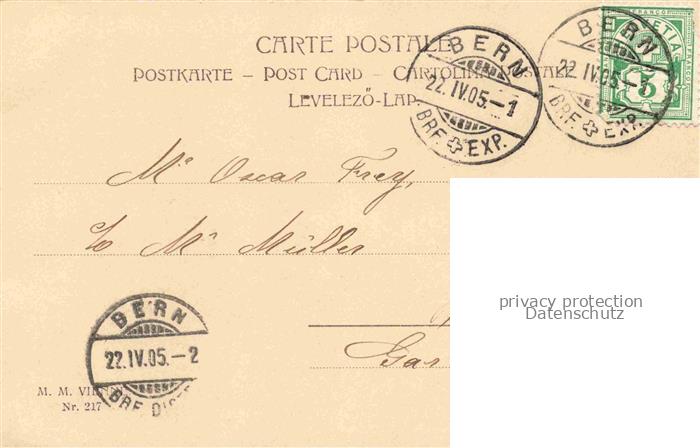 CARTE POSTALE
POSTKARTE – POST CARD – CARTOLINA POSTALE
LEVELEZŐ-LAP.
BERN
22.IV.05.-1
BRF. EXP.
BERN
22.IV.05.
BRF. EXP.
FRANCO
5
Mr Oscar Frey,
c/o Mr Müller
Gar
privacy protection
Datenschutz
BERN
22.IV.05.-2
BRF.
M. M. VIENN
Nr. 217